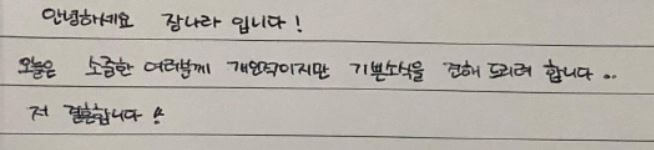 안녕하세요 장나라 입니다!
오늘은 소중한 여러분께 개인적이지만 기쁜소식을 전해 드리려 합니다..
저 결혼합니다!